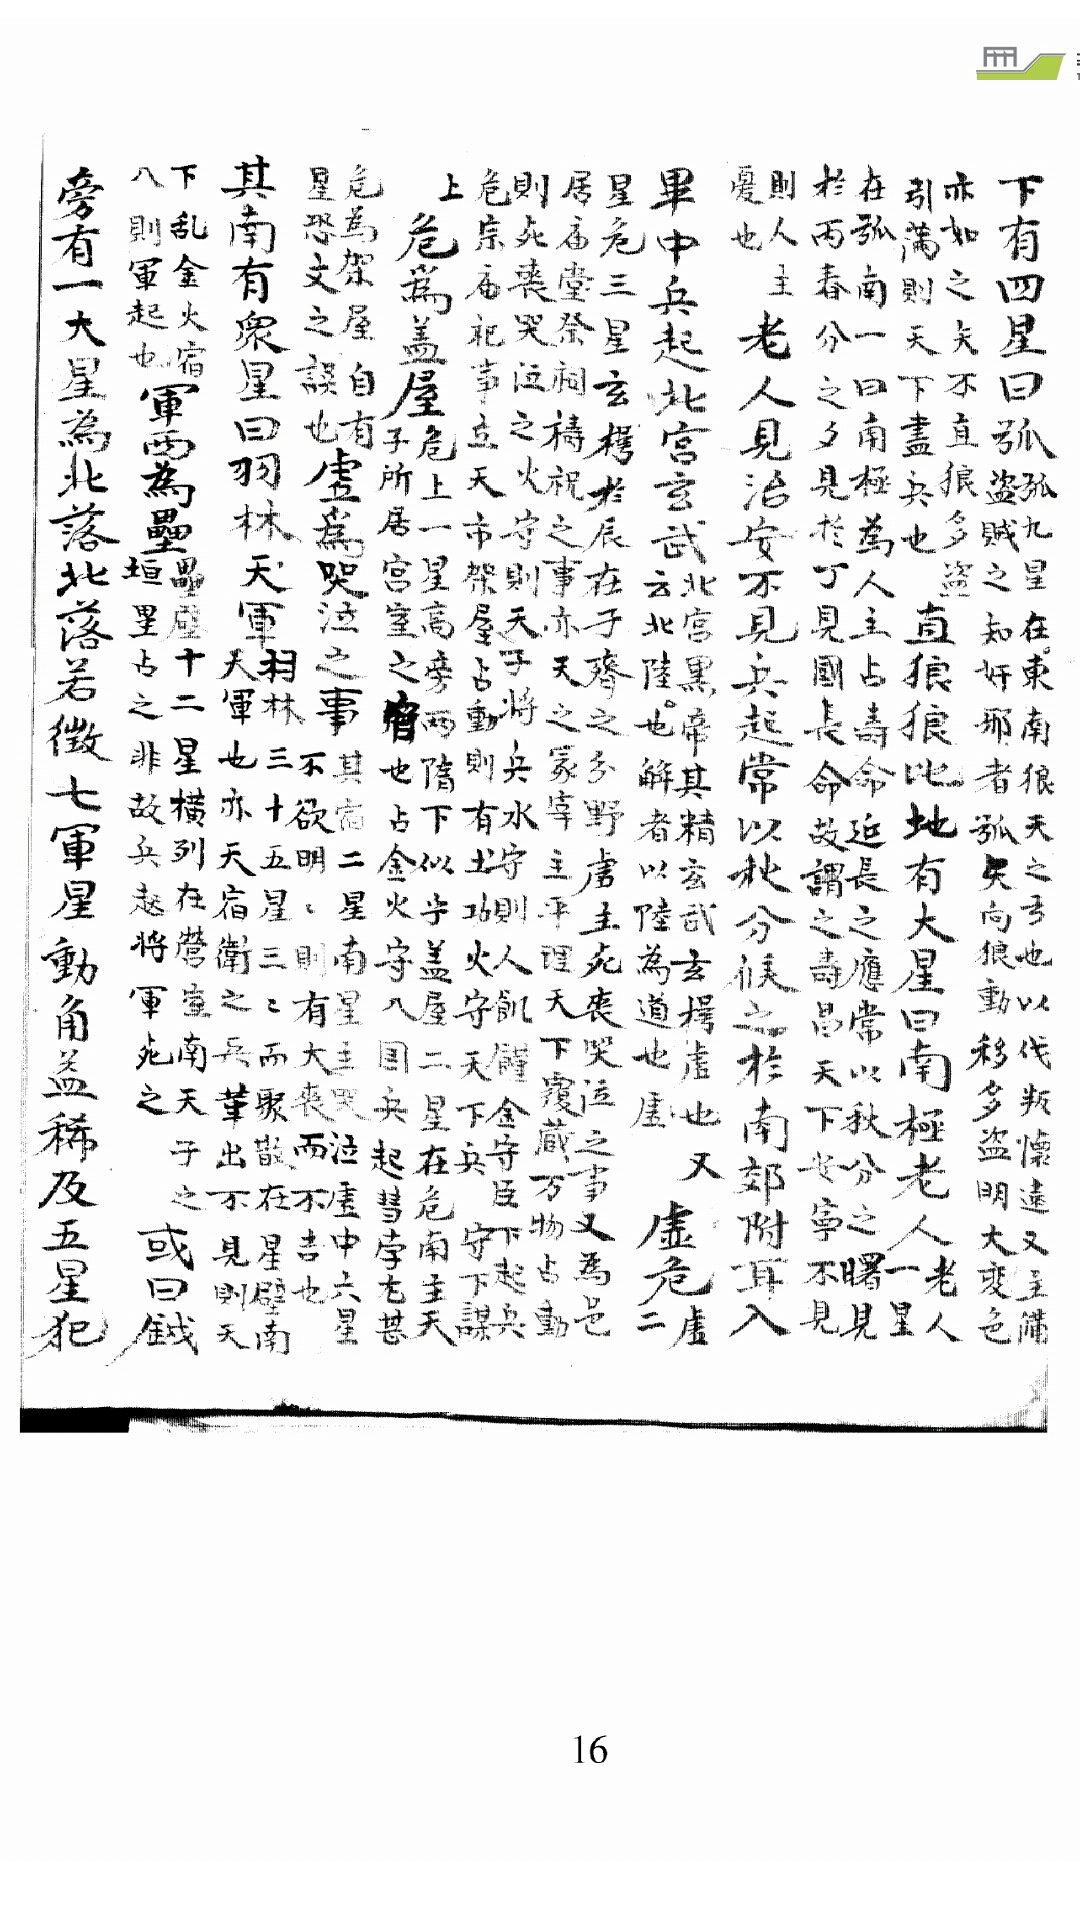 下有四星曰弧
弧九星在東南狼天之弓也以伐叛懷遠又主備
盜賊之知奸邪者弧矢向狼動移多盜明大変色
亦如之矢不直狼多盜
引滿則天下盡兵也
直狼狼比地有大星曰南極老人
老人
一星
在弧南一曰南極為人主占壽命延長之應常以秋分之曙見
於丙春分之夕見於丁見國長命故謂之壽昌天下安寧不見
則人主
憂也
老人見治安不見兵起常以秋分候之於南郊附耳入
畢中兵起北宮玄武
北宮黑帝其精玄武玄枵虛也又
云北陸也解者以陸為道也虛
虛危
虛
二
星危三星玄枵於辰在子齊之分野虛主死喪哭泣之事又為邑
居庙堂祭祠禱祝之事亦天之冢宰主平理天下覆蔵万物占動
則死喪哭泣之火守則天子將兵水守則人飢饉金守臣下起兵
危宗庙祀事立天市架屋占動則有土功火守天下兵 守下謀
上
危為盖屋
危上一星高旁兩隋下似乎盖屋二星在危南主天
子所居宮室之官也占金火守入国兵起彗孛尤甚
危為架屋自有
星恐文之誤也
虛為哭泣之事
其宿二星南星主哭泣虛中六星
不欲明〻則有大喪而不吉也
其南有眾星曰羽林天軍
羽林三十五星三〻而聚散在星壁南
天軍也亦天宿衛之兵革出不見則天
下乱金火宿
八則軍起也
軍西為壘
壘壁十二星橫列在營室南天子之
垣壘占之非故兵起將軍死之
或曰鉞
旁有一大星為北落北落若微七軍星動角益稀及五星犯
16